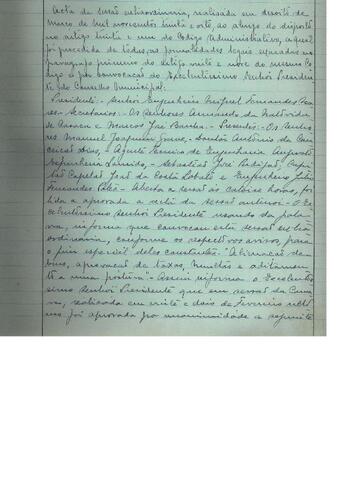 Acta da sessão extraordinaria, realizada em dezoito de
Março de mil novecentos trinta e oito, ao abrigo do disposto
no artigo trinta e um do Codigo Administrativo, a qual
foi precedida de todas as formalidades legais exaradas no
paragrafo primeiro do artigo vinte e nove do mesmo Co-
digo e por convocação do Excelentissimo Senhor Presiden-
te do Conselho Municipal:
Presidente: Senhor Engenheiro Miguel Fernandes Soa-
res - Secretarios: Os Senhores Armando da Natividade
e Marcos José - Presentes: - Os Senho-
res Manuel Joaquim - Doutor António da Con-
ceição - Agente Tecnico de Engenharia Augusto
- Sebastião José - Capi-
tão José da Costa e Engenheiro
Fernandes - Aberta a sessão ás catorze horas, foi
lida e aprovada a acta da sessão anterior - O Ex-
celentissimo Senhor Presidente usando da pala-
vra, informa que convocou esta sessão extra-
ordinaria, conforme os respectivos avisos, para
o fim especial deles constantes: -
aprovação de taxas, multas e aditamen-
to a uma postura - Assim informa o Excelentis-
simo Senhor Presidente que em sessão da Cama-
ra, realizada em vinte e dois de Fevereiro ulti-
mo foi aprovada por unanimidade a seguinte